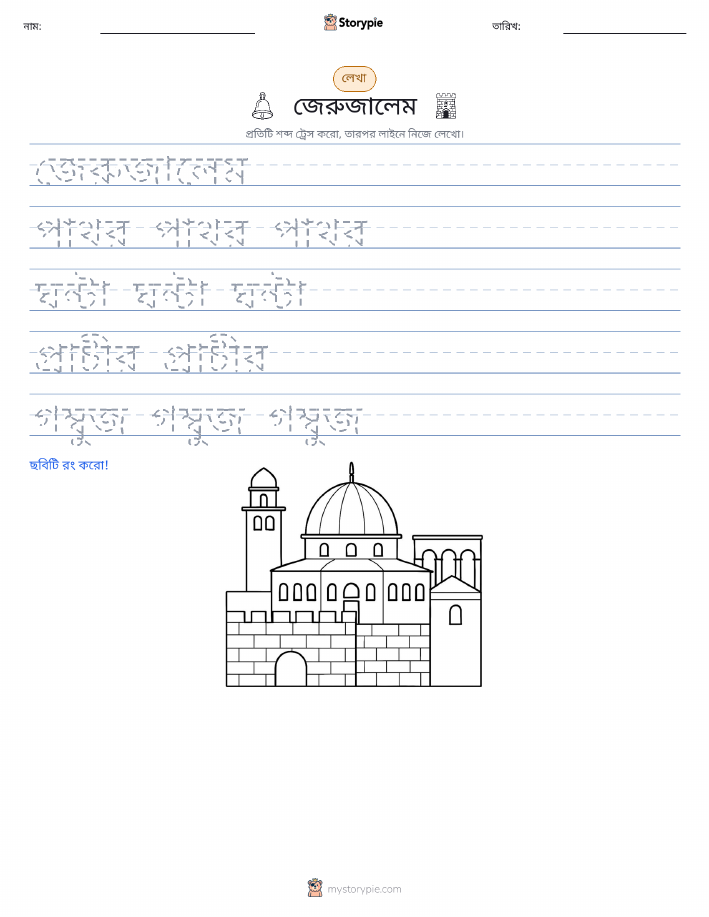 নাম:
Storypie
তারিখ:
লেখা
জেরুজালেম
প্রতিটি শব্দ ট্রেস করো, তারপর লাইনে নিজে লেখো।
জেরুজালেম
পাথর পাথর পাথর
ঘণ্টা ঘণ্টা ঘণ্টা
প্রাচীর প্রাচীর
গম্বুজ গম্বুজ গম্বুজ
ছবিটি রং করো!
mystorypie.com